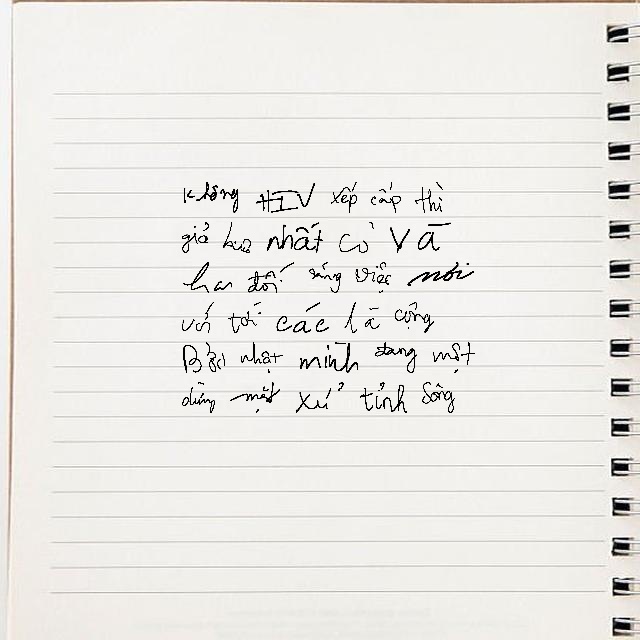 Không HIV xếp cấp thì
giả hơn nhất cỏ Và
hơn đối sáng việc nói
với tới các là cộng
Bởi nhật mình đang một
dừng một xử tỉnh Sông